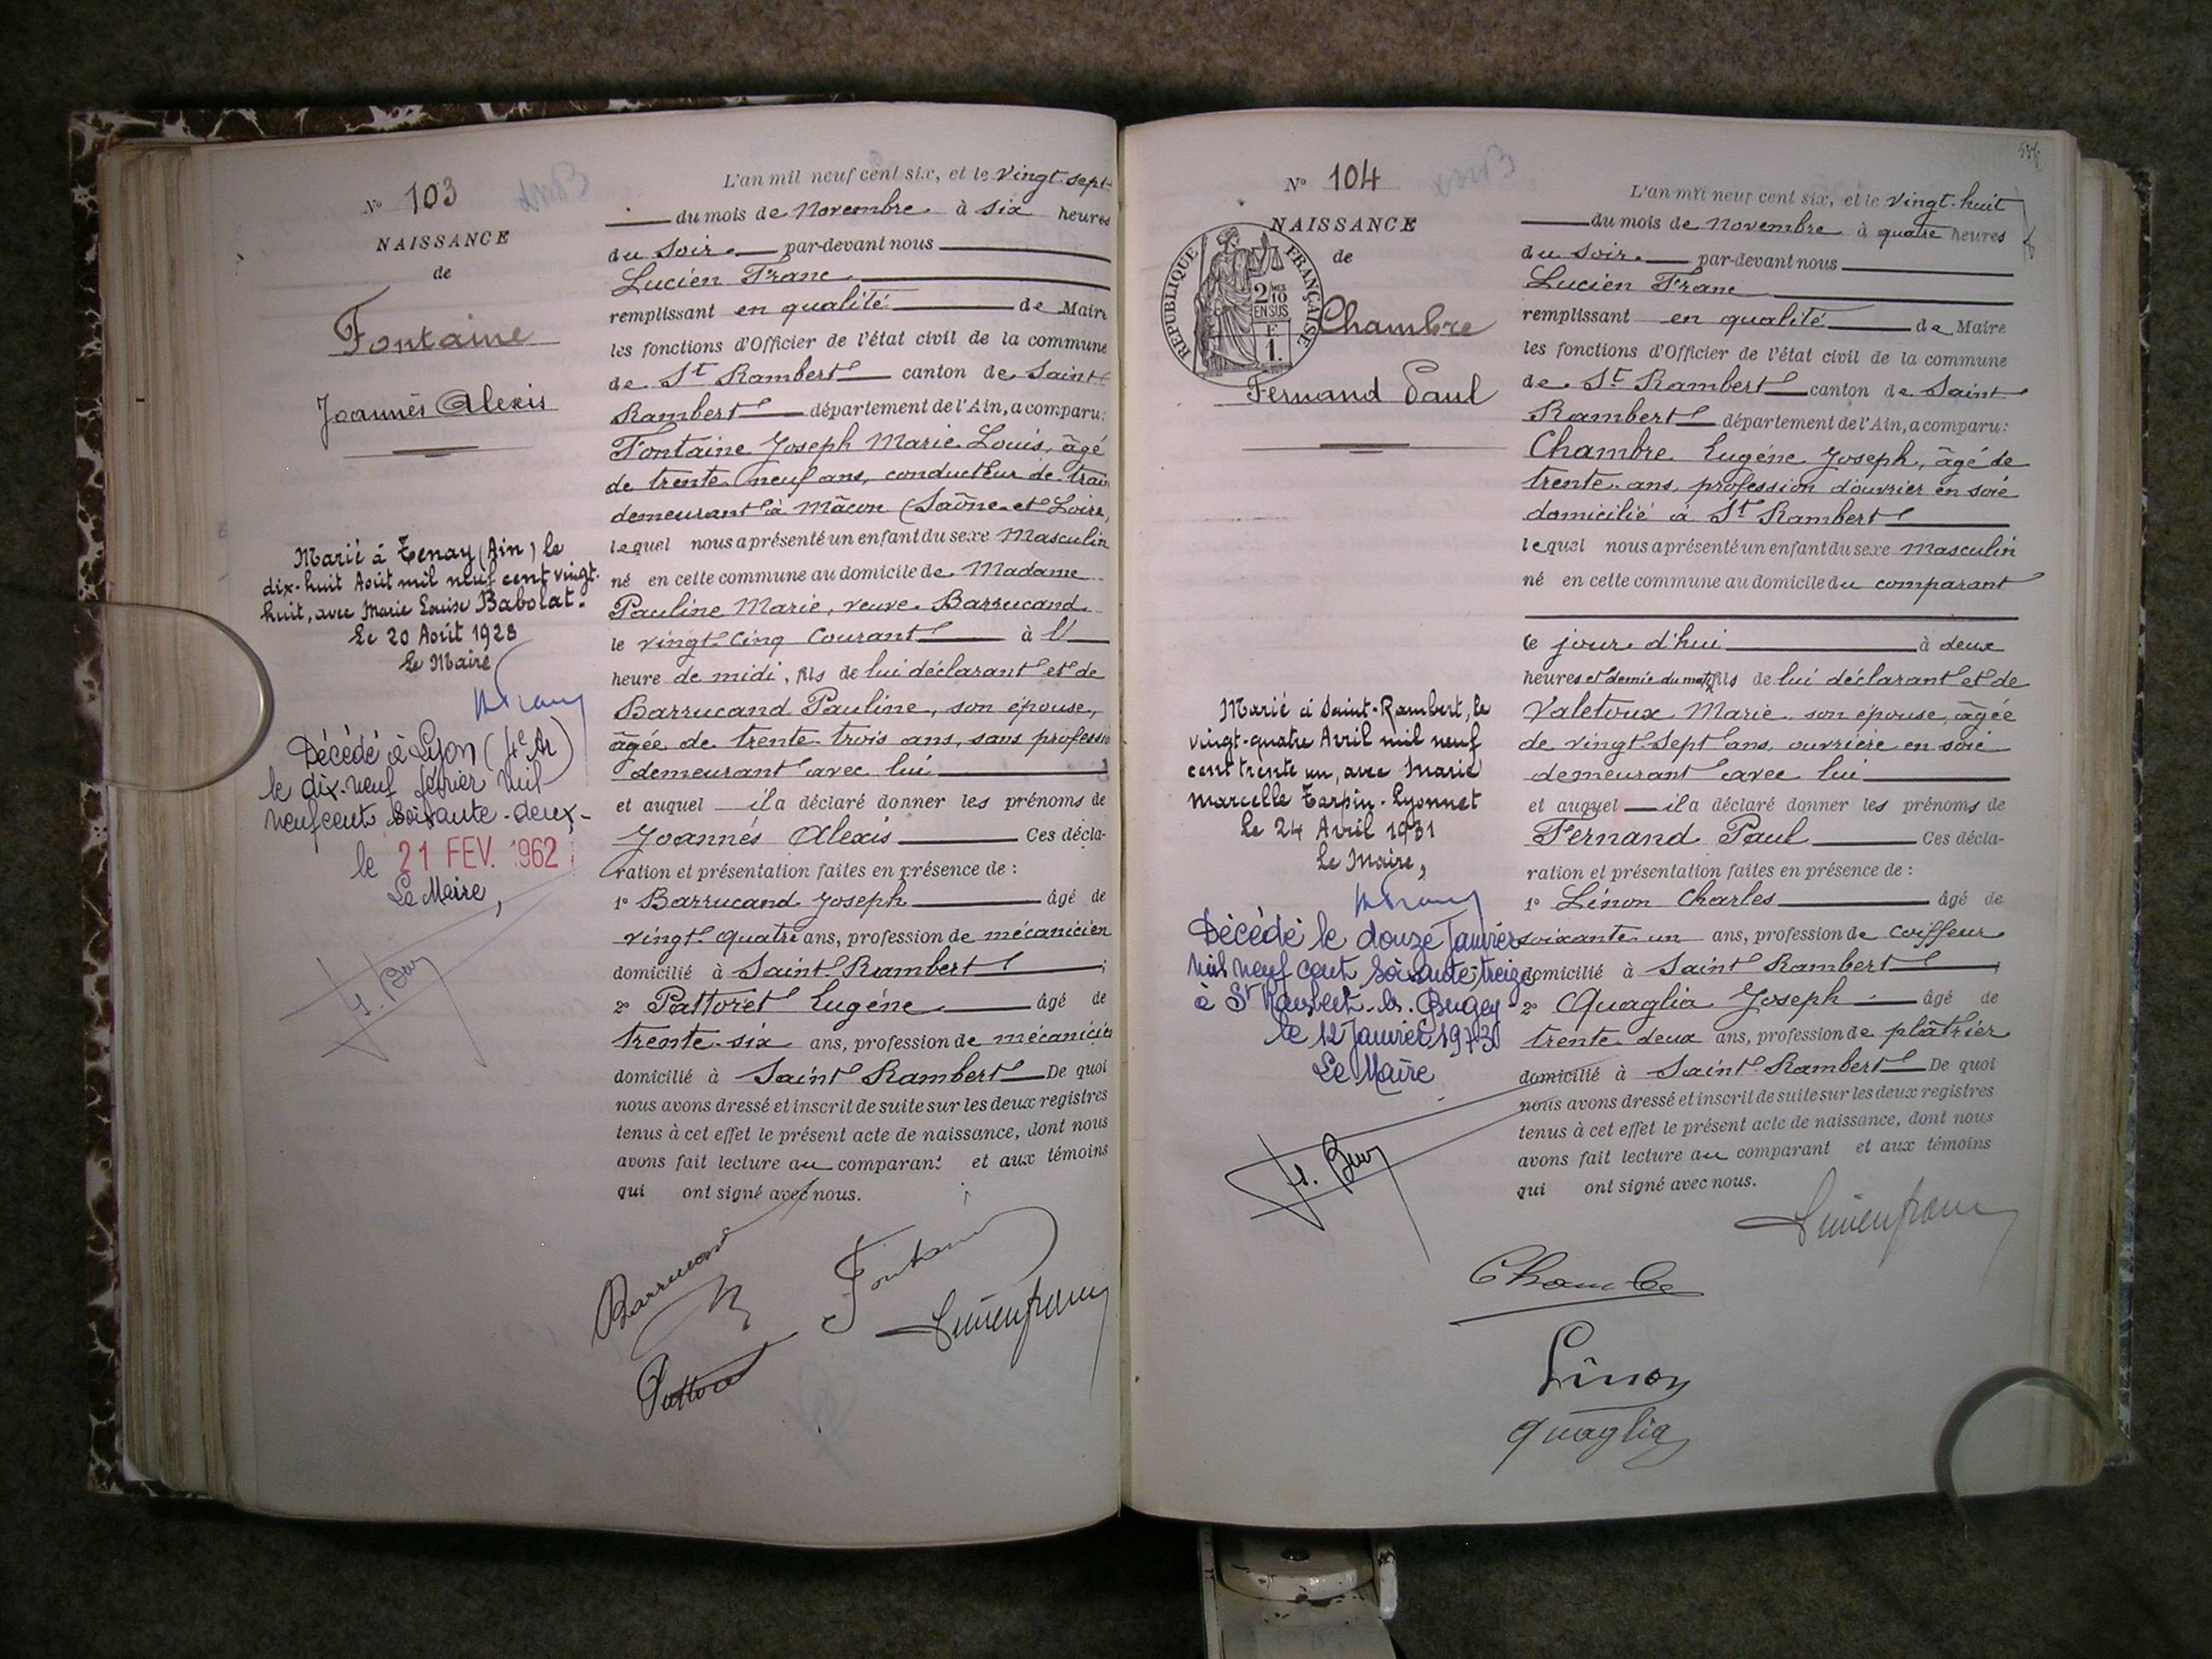 N° 103
NAISSANCE
de
Fontaine
Joannès Alexis
Marié à Tenay (Ain) le
dix-huit Août mil neuf cent vingt-
huit, avec Marie Louise Babolat.
Le 20 Août 1928
Le Maire
Décédé à Lyon (4e Ar)
le dix-neuf février mil
neuf cent soixante-deux-
le 21 FEV. 1962
Le Maire,
L'an mil neuf cent six, et le vingt-sept
du mois de Novembre à six heures
du soir par-devant nous
Lucien Franc
remplissant en qualité de Maire
les fonctions d'Officier de l'état civil de la commune
de St Rambert canton de Saint-
Rambert département de l'Ain, a comparu:
Fontaine Joseph Marie Louis, âgé
de trente-neuf ans, conducteur de trav
demeurant à Mâcon (Saône-et-Loire,
lequel nous a présenté un enfant du sexe Masculin
né en cette commune au domicile de Madame
Pauline Marie, veuve Barrucand
le vingt-cinq courant à l'
heure de midi, fils de lui déclarant et de
Barrucand Pauline, son épouse,
âgée de trente-trois ans, sans professio
demeurant avec lui
et auquel il a déclaré donner les prénoms de
Joannés Alexis Ces décla-
ration et présentation faites en présence de :
1° Barrucand Joseph âgé de
vingt-quatre ans, profession de mécanicien
domicilié à Saint-Rambert ;
2° Pattoret Eugéne âgé de
trente-six ans, profession de mécanicien
domicilié à Saint Rambert De quoi
nous avons dressé et inscrit de suite sur les deux registres
tenus à cet effet le présent acte de naissance, dont nous
avons fait lecture au comparant et aux témoins
qui ont signé avec nous.
Barrucand
Fontaine
Lucien franc
Pattoret
N° 104
NAISSANCE
de
REPUBLIQUE FRANÇAISE
2/10
EN SUS
F
1.
Chambre
Fernand Paul
Marié à Saint-Rambert, le
vingt-quatre Avril mil neuf
cent trente un, avec Marie
Marcelle Tarpin-Lyonnet
Le 24 Avril 1931
Le Maire,
Décédé le douze Janvier
mil neuf cent soixante-treize
à St Rambert-en-Bugey
le 12 Janvier 1973
Le Maire
L'an mil neuf cent six, et le vingt-huit
du mois de Novembre à quatre heures
du soir par-devant nous
Lucien Franc
remplissant en qualité de Maire
les fonctions d'Officier de l'état civil de la commune
de St Rambert canton de Saint-
Rambert département de l'Ain, a comparu:
Chambre Eugéne Joseph, âgé de
trente ans, profession d'ouvrier en soie
domicilié à St Rambert
lequel nous a présenté un enfant du sexe Masculin
né en cette commune au domicile du comparant
le jour d'hui à deux
heures et demie du matin, fils de lui déclarant et de
Valetoux Marie son épouse, âgée
de vingt-sept ans, ouvrière en soie
demeurant avec lui
et auquel il a déclaré donner les prénoms de
Fernand Paul Ces décla-
ration et présentation faites en présence de :
1° Linon Charles âgé de
soixante un ans, profession de coiffeur
domicilié à Saint Rambert ;
2° Quaglia Joseph âgé de
trente-deux ans, profession de plâtrier
domicilié à Saint-Rambert De quoi
nous avons dressé et inscrit de suite sur les deux registres
tenus à cet effet le présent acte de naissance, dont nous
avons fait lecture au comparant et aux témoins
qui ont signé avec nous.
Lucien franc
Chambre
Linon
quaglia